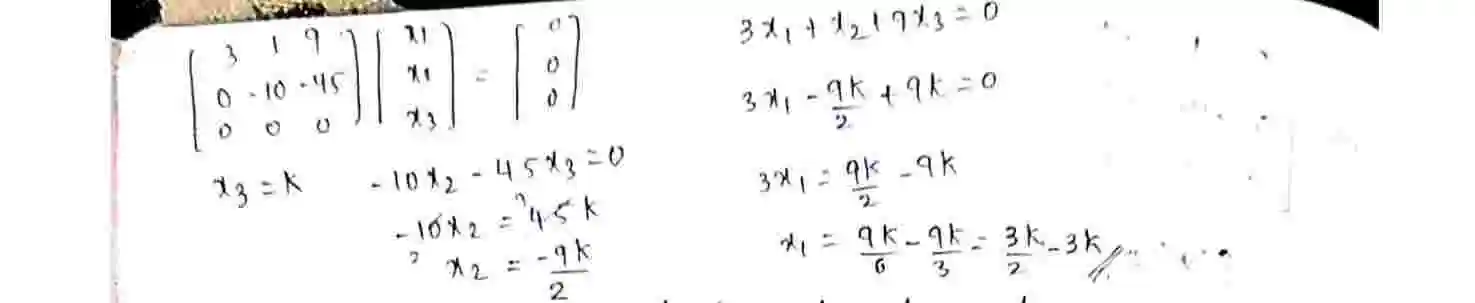 [3 1 9; 0 -10 -45; 0 0 0] [x1; x1; x3] = [0; 0; 0]
x3 = k
-10x2 - 45x3 = 0
-10x2 = 45k
x2 = -9k/2
3x1 + x2 + 9x3 = 0
3x1 - 9k/2 + 9k = 0
3x1 = 9k/2 - 9k
x1 = 9k/6 - 9k/3 = 3k/2 - 3k //